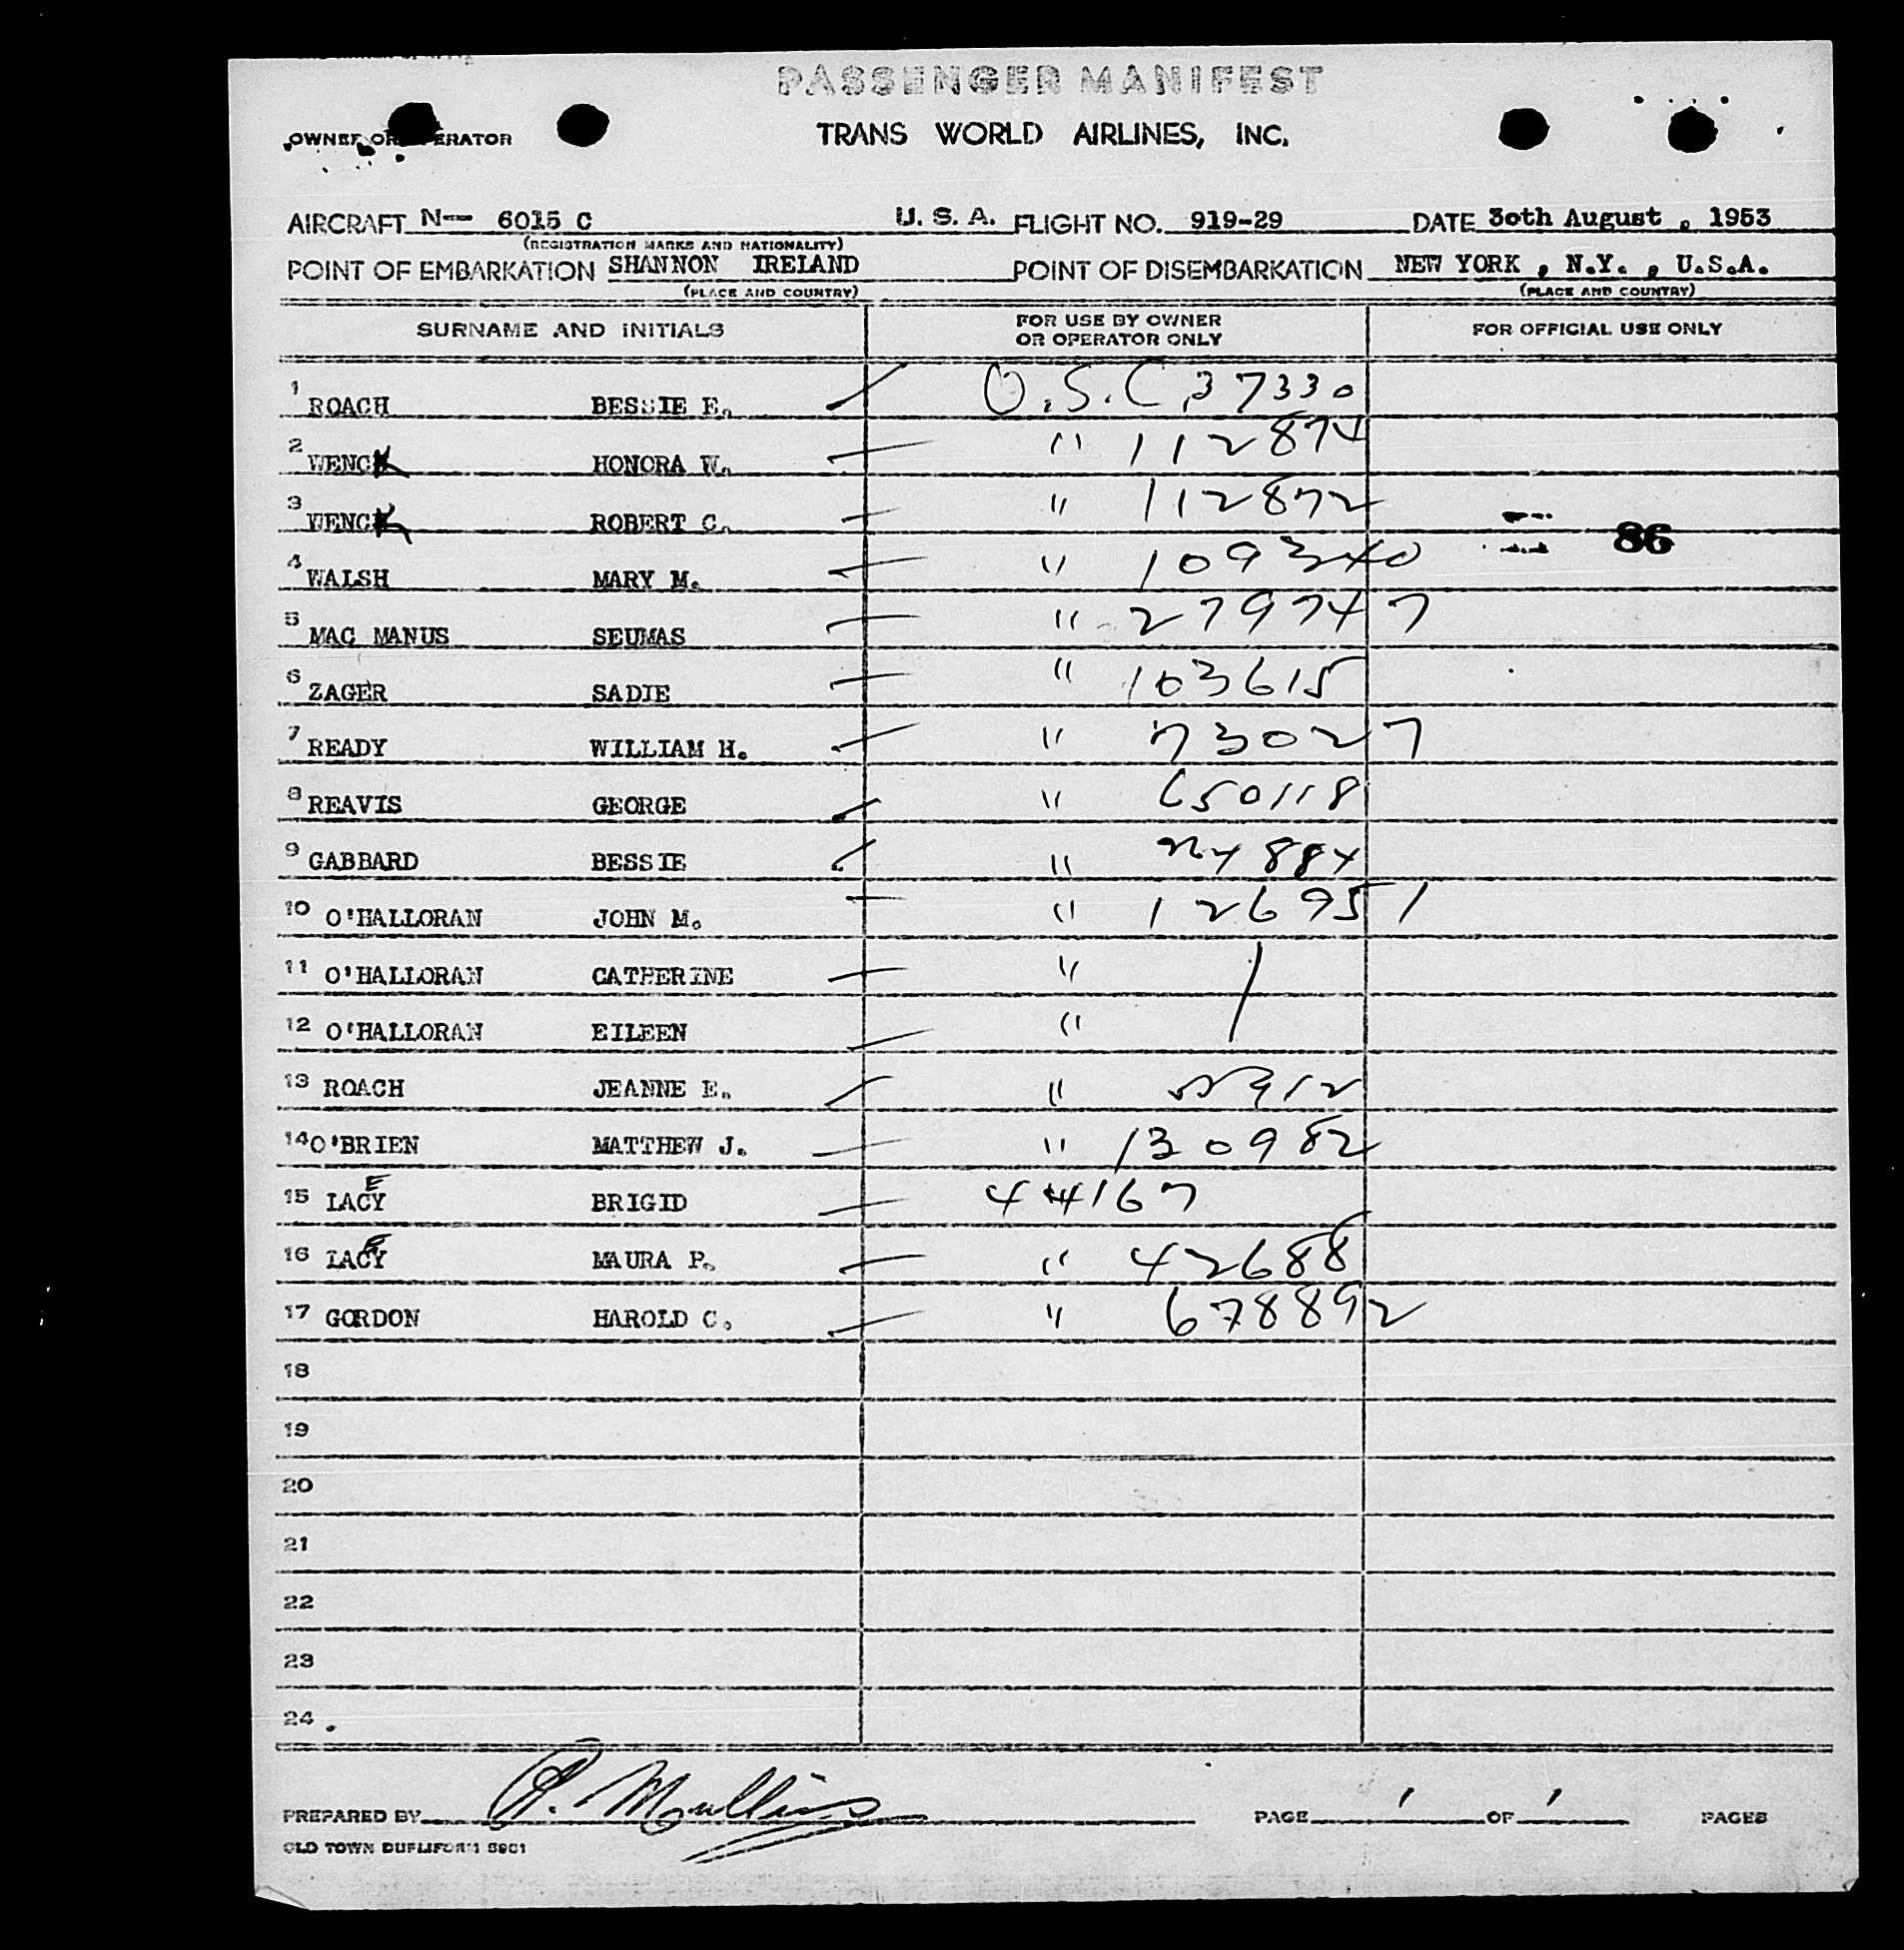 PASSENGER MANIFEST
OWNER OR OPERATOR TRANS WORLD AIRLINES, INC.
AIRCRAFT N-- 6015 C U. S. A. FLIGHT NO. 919-29 DATE 30th August , 1953
(REGISTRATION MARKS AND NATIONALITY)
POINT OF EMBARKATION SHANNON IRELAND POINT OF DISEMBARKATION NEW YORK , N.Y. , U.S.A.
(PLACE AND COUNTRY) (PLACE AND COUNTRY)
SURNAME AND INITIALS FOR USE BY OWNER OR OPERATOR ONLY FOR OFFICIAL USE ONLY
1 ROACH BESSIE E. U.S.C. 37330
2 WENCK HONORA W. " 112874
3 WENCK ROBERT C. " 112872
86
4 WALSH MARY M. " 109340
5 MAC MANUS SEUMAS " 279747
6 ZAGER SADIE " 103615
7 READY WILLIAM H. " 73027
8 REAVIS GEORGE " 650118
9 GABBARD BESSIE "
10 O'HALLORAN JOHN M. " 126951
11 O'HALLORAN CATHERINE "
12 O'HALLORAN EILEEN "
13 ROACH JEANNE E. "
14 O'BRIEN MATTHEW J. " 130982
15 LACEY BRIGID 44167
16 LACEY MAURA P. " 42688
17 GORDON HAROLD C. " 678892
18
19
20
21
22
23
24 .
PREPARED BY P. Mullins PAGE 1 OF 1 PAGES
OLD TOWN DUPLIFORM 5981